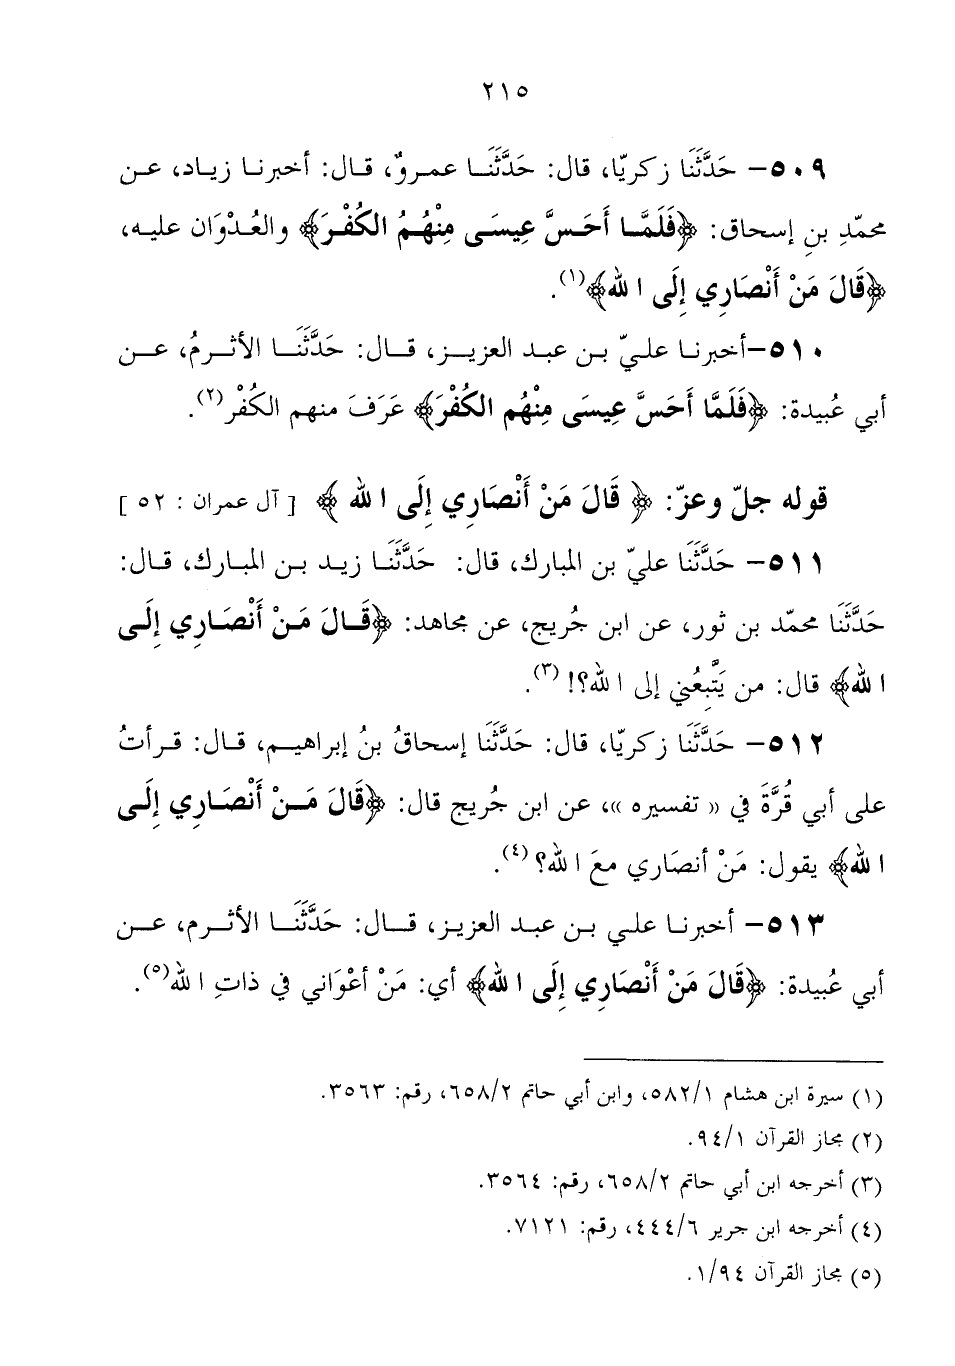 ٢١٥
٥٠٩– حَدَّثَنَا زكريّا، قال: حَدَّثَنَا عمروٌ، قال: أخبرنا زياد، عن
محمّدِ بنِ إسحاق: ﴿فَلَمَّا أَحَسَّ عِيسَى مِنْهُمُ الكُفْرَ﴾ والعُدْوَان عليه،
﴿قَالَ مَنْ أَنْصَارِي إِلَى الله﴾(١).
٥١٠–أخبرنا عليّ بن عبد العزيز، قال: حَدَّثَنَا الأثرمُ، عن
أبي عُبيدة: ﴿فَلَمَّا أَحَسَّ عِيسَى مِنْهُم الكُفْرَ﴾ عَرَفَ منهم الكُفْر(٢).
قوله جلّ وعزّ: ﴿ قَالَ مَنْ أَنْصَارِي إِلَى الله ﴾ [ آل عمران : ٥٢ ]
٥١١– حَدَّثَنَا عليّ بن المبارك، قال: حَدَّثَنَا زيد بن المبارك، قال:
حَدَّثَنَا محمّد بن ثور، عن ابن جُريج، عن مجاهد: ﴿قَالَ مَنْ أَنْصَارِي إِلَى
الله﴾ قال: من يَتَّبِعُني إلى الله؟! (٣).
٥١٢– حَدَّثَنَا زكريّا، قال: حَدَّثَنَا إسحاقُ بنُ إبراهيم، قال: قرأتُ
على أبي قُرَّةَ في « تفسيره »، عن ابن جُريج قال: ﴿قَالَ مَنْ أَنْصَارِي إِلَى
الله﴾ يقول: مَنْ أنصَاري معَ الله؟ (٤).
٥١٣– أخبرنا علي بن عبد العزيز، قال: حَدَّثَنَا الأثرم، عن
أبي عُبيدة: ﴿قَالَ مَنْ أَنْصَارِي إِلَى الله﴾ أي: مَنْ أعْوَاني في ذاتِ الله(٥).
(١) سيرة ابن هشام ٥٨٢/١، وابن أبي حاتم ٦٥٨/٢، رقم: ٣٥٦٣.
(٢) مجاز القرآن ٩٤/١.
(٣) أخرجه ابن أبي حاتم ٦٥٨/٢، رقم: ٣٥٦٤.
(٤) أخرجه ابن جرير ٤٤٤/٦، رقم: ٧١٢١.
(٥) مجاز القرآن ١/٩٤.